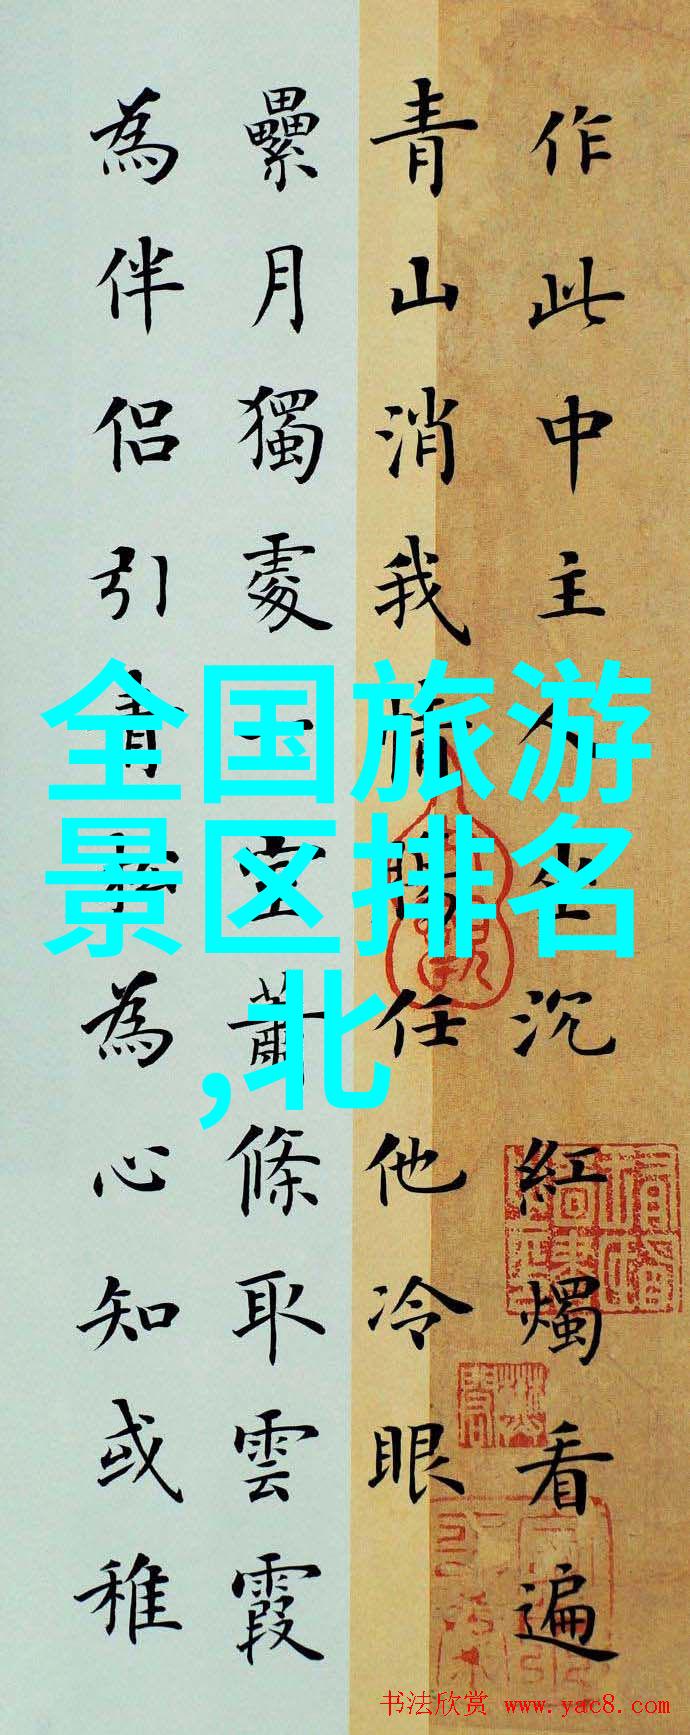 作此中主人坐沉紅燭看遍
青山消我情腸任他冷眼
纍月獨處一室蕭條取雲霞
為伴侶引青松為心知或稚
全国旅游
景区排名
,北
书法欣赏 www.yac8.com